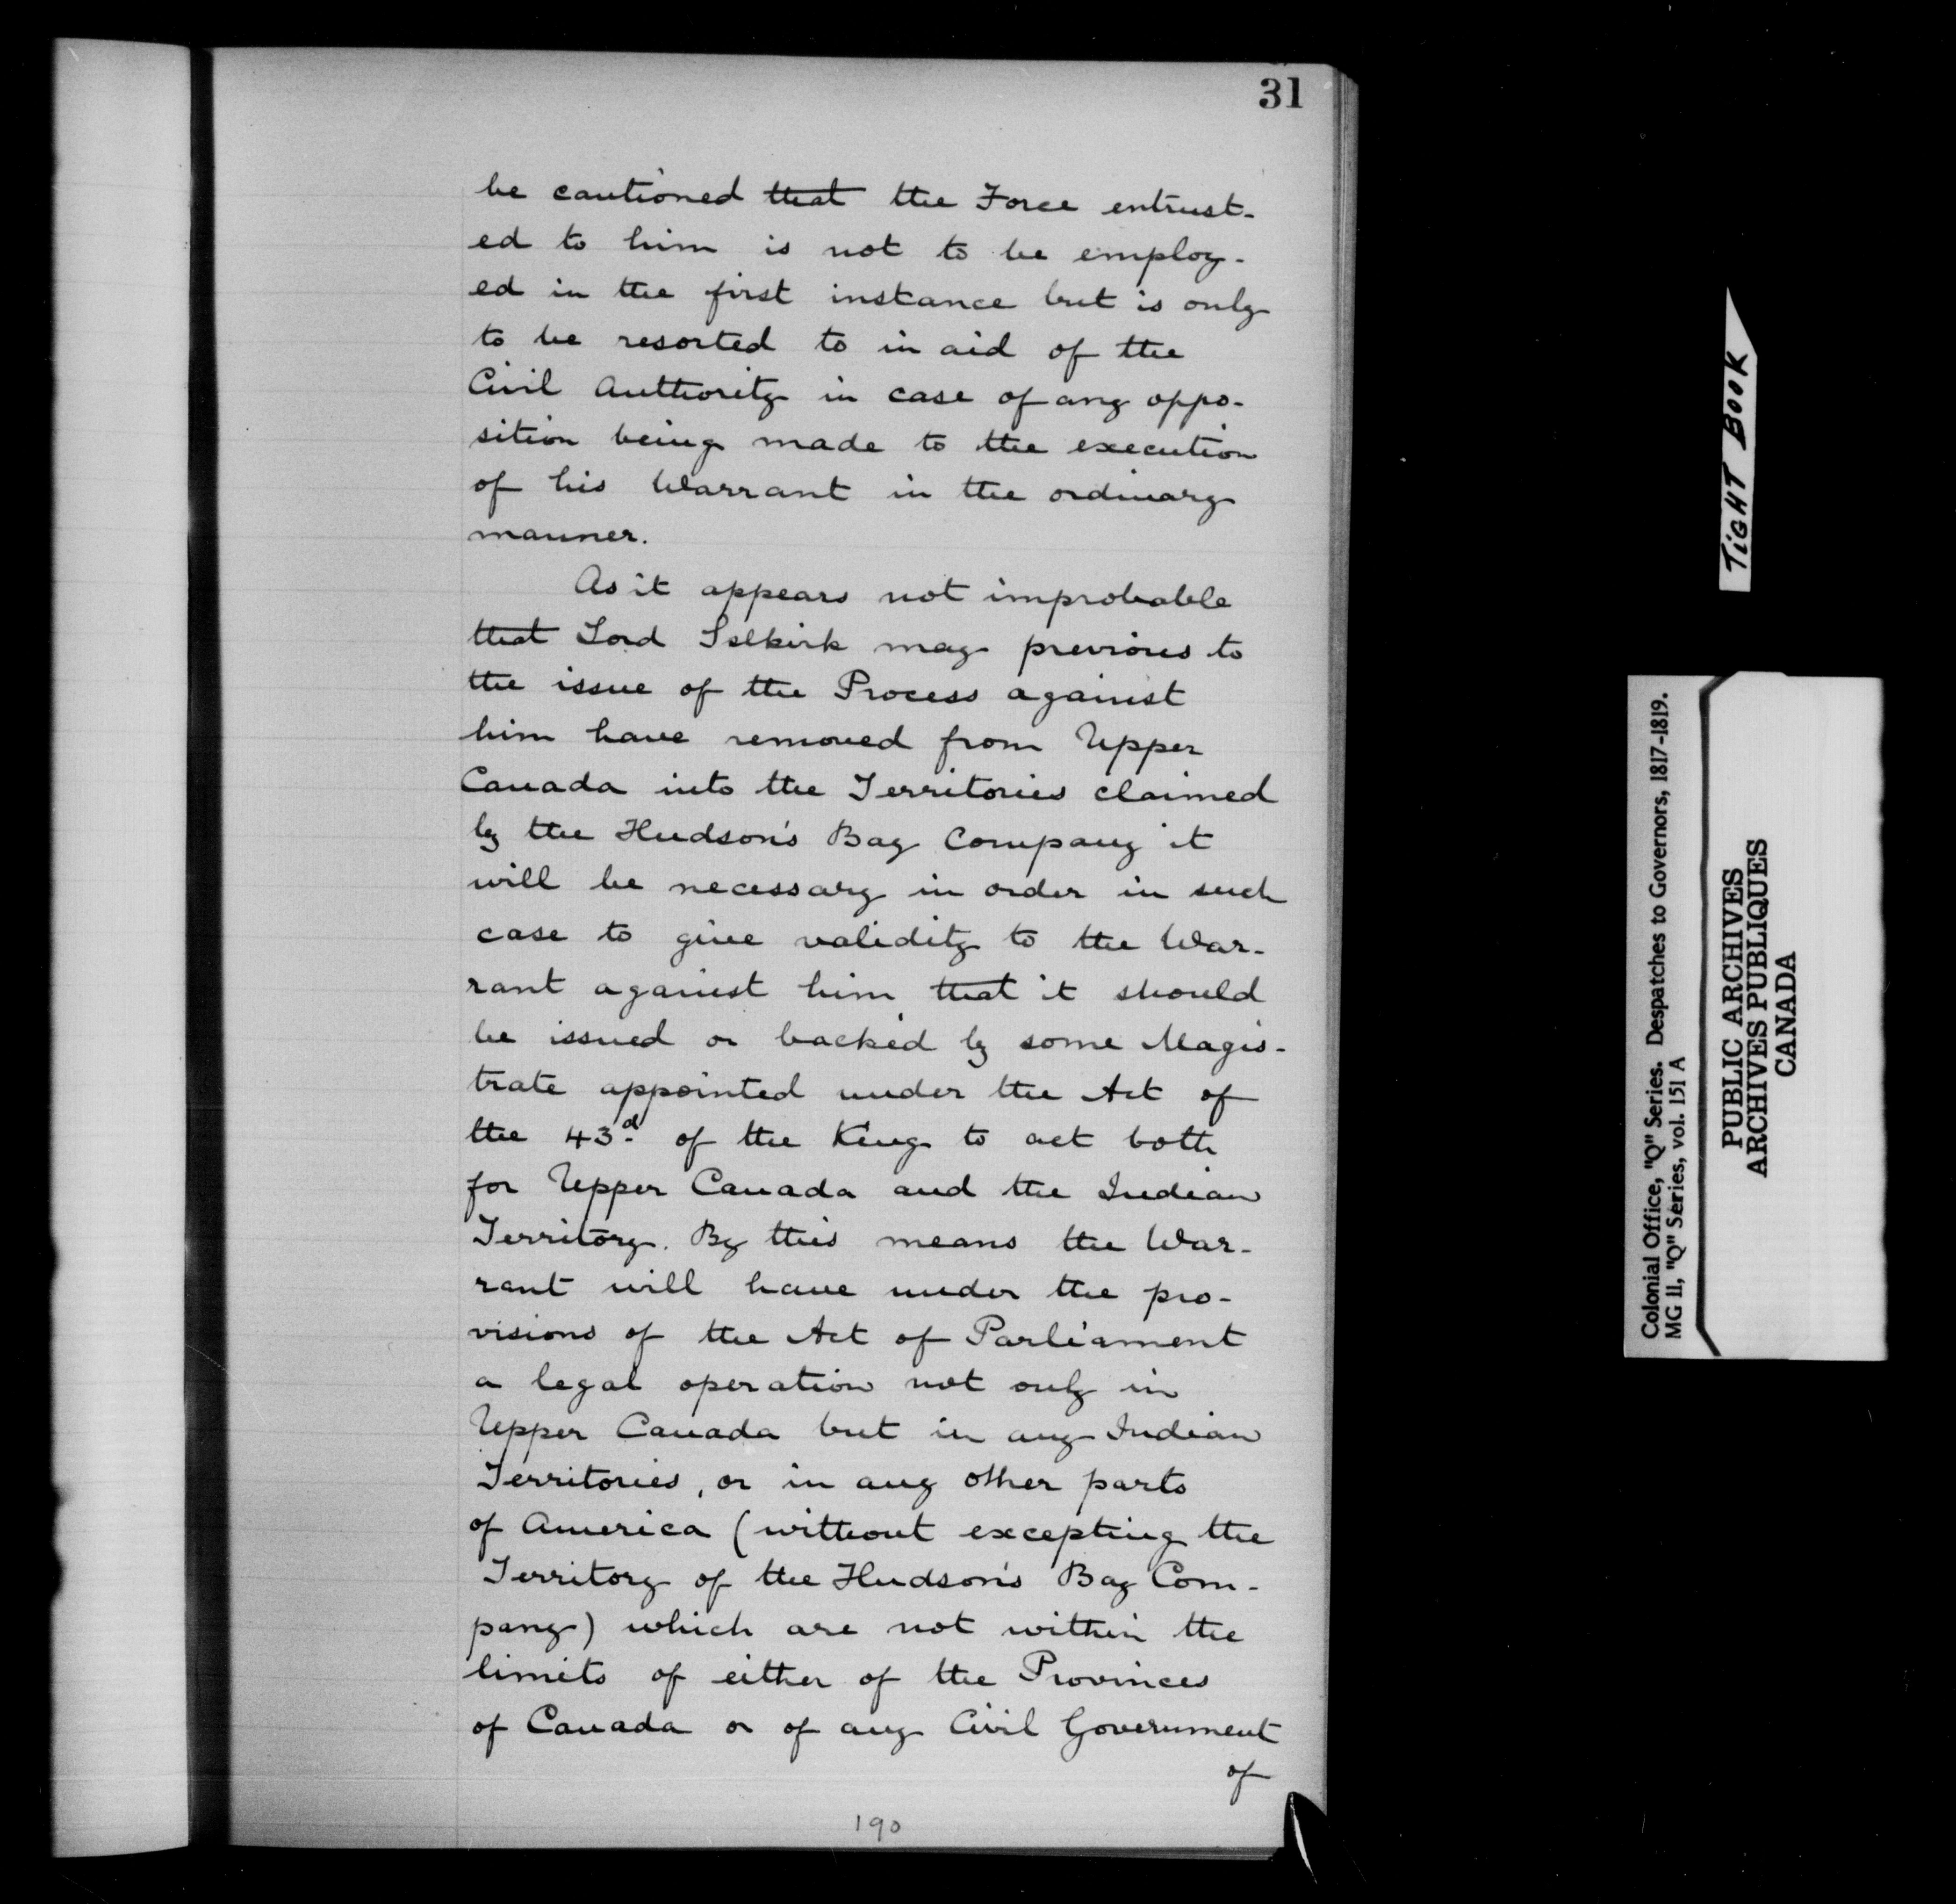 31
be cautioned that the Force entrust-
ed to him is not to be employ-
ed in the first instance but is only
to be resorted to in aid of the
Civil Authority in case of any oppo-
sition being made to the execution
of his Warrant in the ordinary
manner.
As it appears not improbable
that Lord Selkirk may previous to
the issue of the Process against
him have removed from Upper
Canada into the Territories claimed
by the Hudson's Bay Company it
will be necessary in order in such
case to give validity to the War-
rant against him that it should
be issued or backed by some Magis-
trate appointed under the Act of
the 43d. of the King to act both
for Upper Canada and the Indian
Territory. By this means the War-
rant will have under the pro-
visions of the Act of Parliament
a legal operation not only in
Upper Canada but in any Indian
Territories, or in any other parts
of America (without excepting the
Territory of the Hudson's Bay Com-
pany) which are not within the
limits of either of the Provinces
of Canada or of any Civil Government
of
190
TIGHT BOOK
Colonial Office, "Q" Series. Despatches to Governors, 1817-1819.
MG 11, "Q" Series, vol. 151 A
PUBLIC ARCHIVES
ARCHIVES PUBLIQUES
CANADA